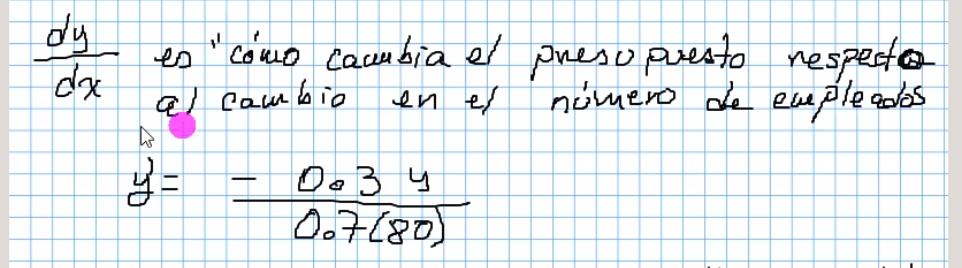 dy/dx es "cómo cambia el presupuesto respecto
al cambio en el número de empleados
y' = - 0.3 y / 0.7(80)